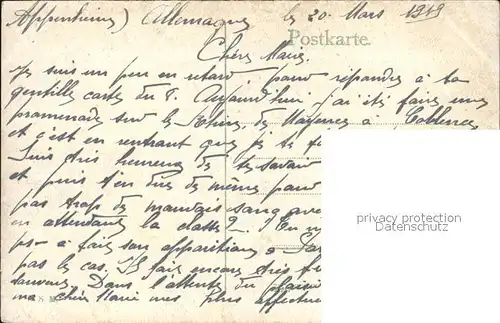 Appenheim) Allemagne le 20. Mars 1919
Postkarte.
Chère Marie.
Je suis un peu en retard pour répondre à ta
gentille carte du 8. Aujourd'hui j'ai été faire une
promenade sur le Rhin, de Mayence à Coblence
et c'est en rentrant que je te
Suis très heureux de te savoir
et puis t'en dire de même pour
pas trop de mauvais sang
en attendant la classe?
à faire son apparition à
pas le cas. Il fait encore très
Dans l'attente du plaisir
ma chère Marie mes plus
privacy protection
Datenschutz